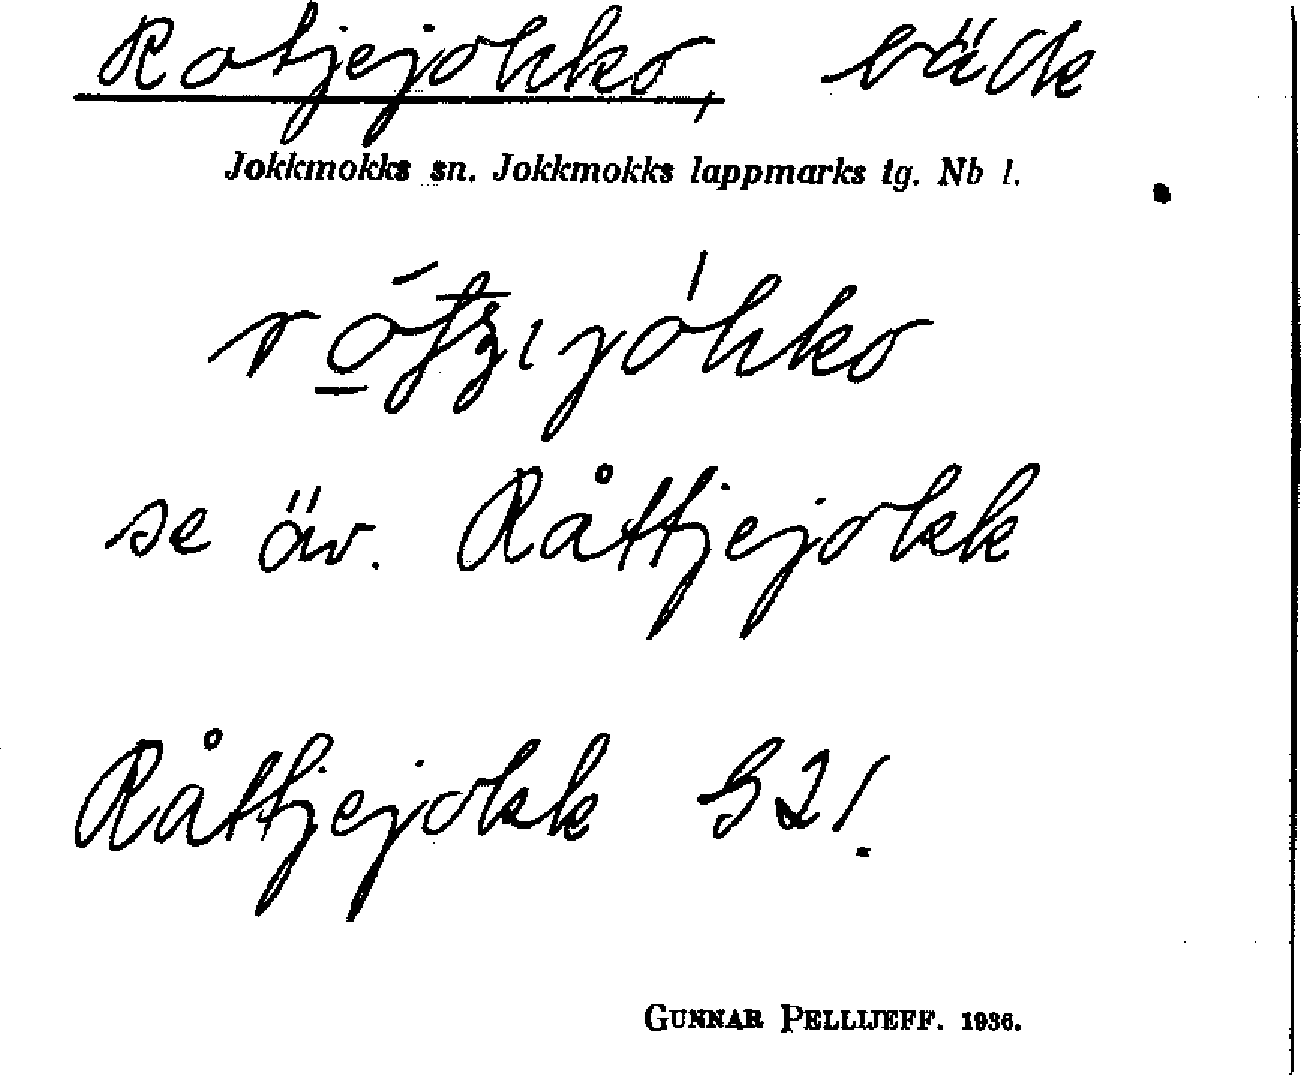 Rotjejohko, bäck
Jokkmokks sn. Jokkmokks lappmarks tg. Nb l.
se äv. Råttjejokk
Råttjejokk S21!
GUNNAR PELLIJEFF. 1936.